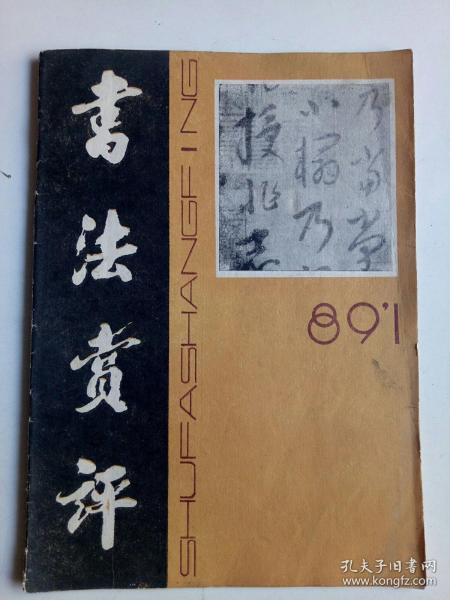 书法赏评
SHUFASHANGFING
89'1
孔夫子旧书网
www.kongfz.com